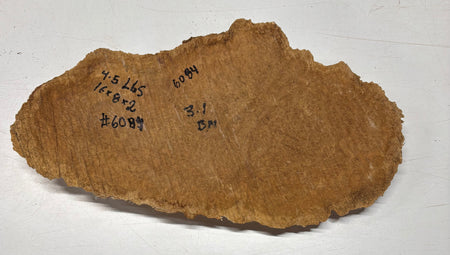 4.5 Lbs
16x8x2
#6089
6084
3.1
BM